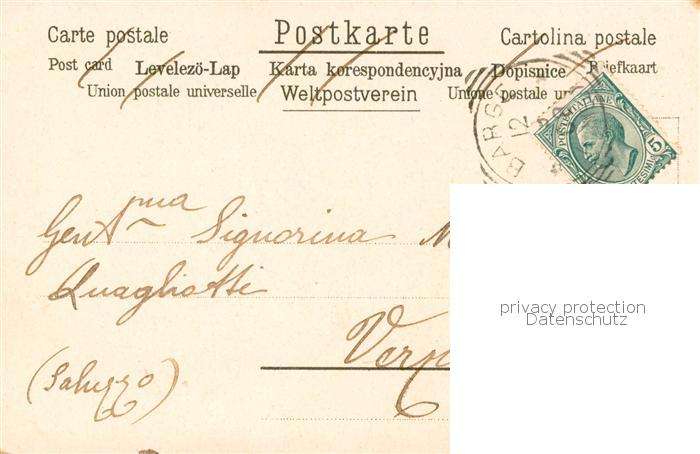 Carte postale Postkarte Cartolina postale
Post card Levelezö-Lap Karta korespondencyjna Dopisnice Briefkaart
Union postale universelle Weltpostverein Unione postale un
BARG
12
POSTE ITALIANE
5
Gent.ma Signorina M
Quagliotti
privacy protection
Datenschutz
Vern
(Saluzzo)